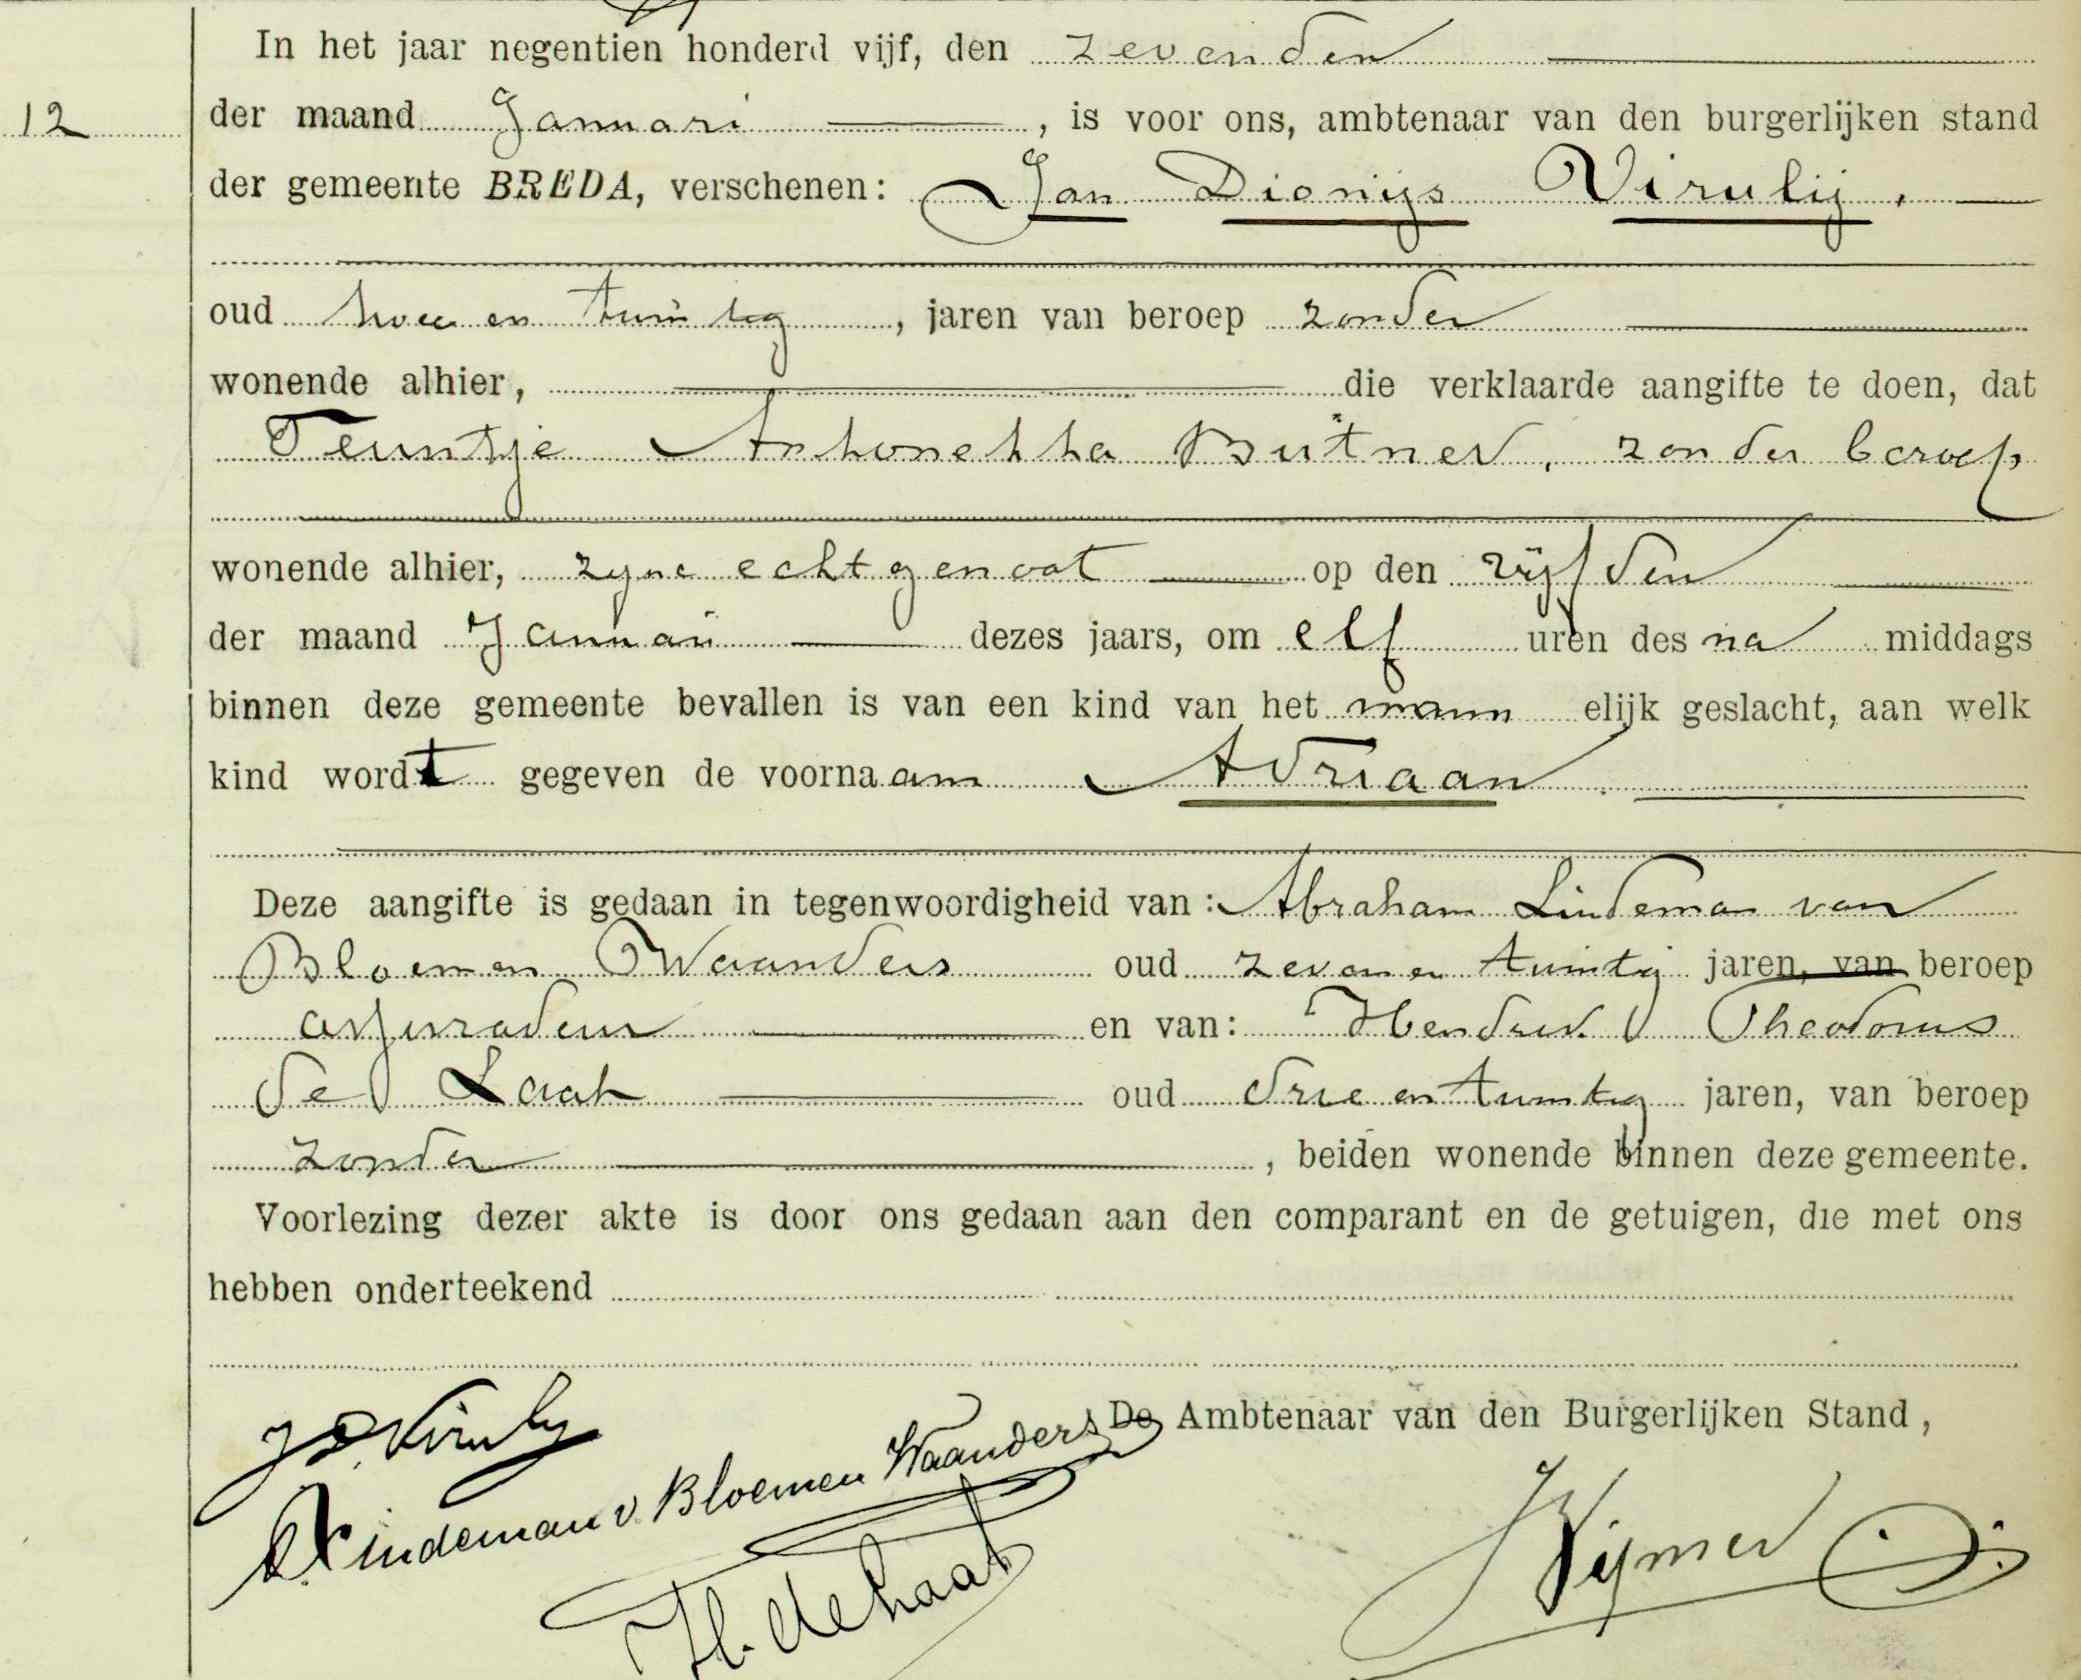 In het jaar negentien honderd vijf, den zevenden
12
der maand Januari, is voor ons, ambtenaar van den burgerlijken stand
der gemeente BREDA, verschenen: Jan Dionijs Virulij,
oud twee en twintig, jaren van beroep zonder
wonende alhier, die verklaarde aangifte te doen, dat
Teuntje Anthonetta Bütner, zonder beroep
wonende alhier, zyne echtgenoot op den vijfden
der maand Januari dezes jaars, om elf uren des na middags
binnen deze gemeente bevallen is van een kind van het mann elijk geslacht, aan welk
kind wordt gegeven de voornaam Adriaan
Deze aangifte is gedaan in tegenwoordigheid van: Abraham Lindeman van
Bloemen Waanders oud zeven en twintig jaren, van beroep
en van: Hendrik Theodorus
de Laat oud drie en twintig jaren, van beroep
zonder, beiden wonende binnen deze gemeente.
Voorlezing dezer akte is door ons gedaan aan den comparant en de getuigen, die met ons
hebben onderteekend
De Ambtenaar van den Burgerlijken Stand,
JD Viruly
A. Lindeman v. Bloemen Waanders
H. de Laat